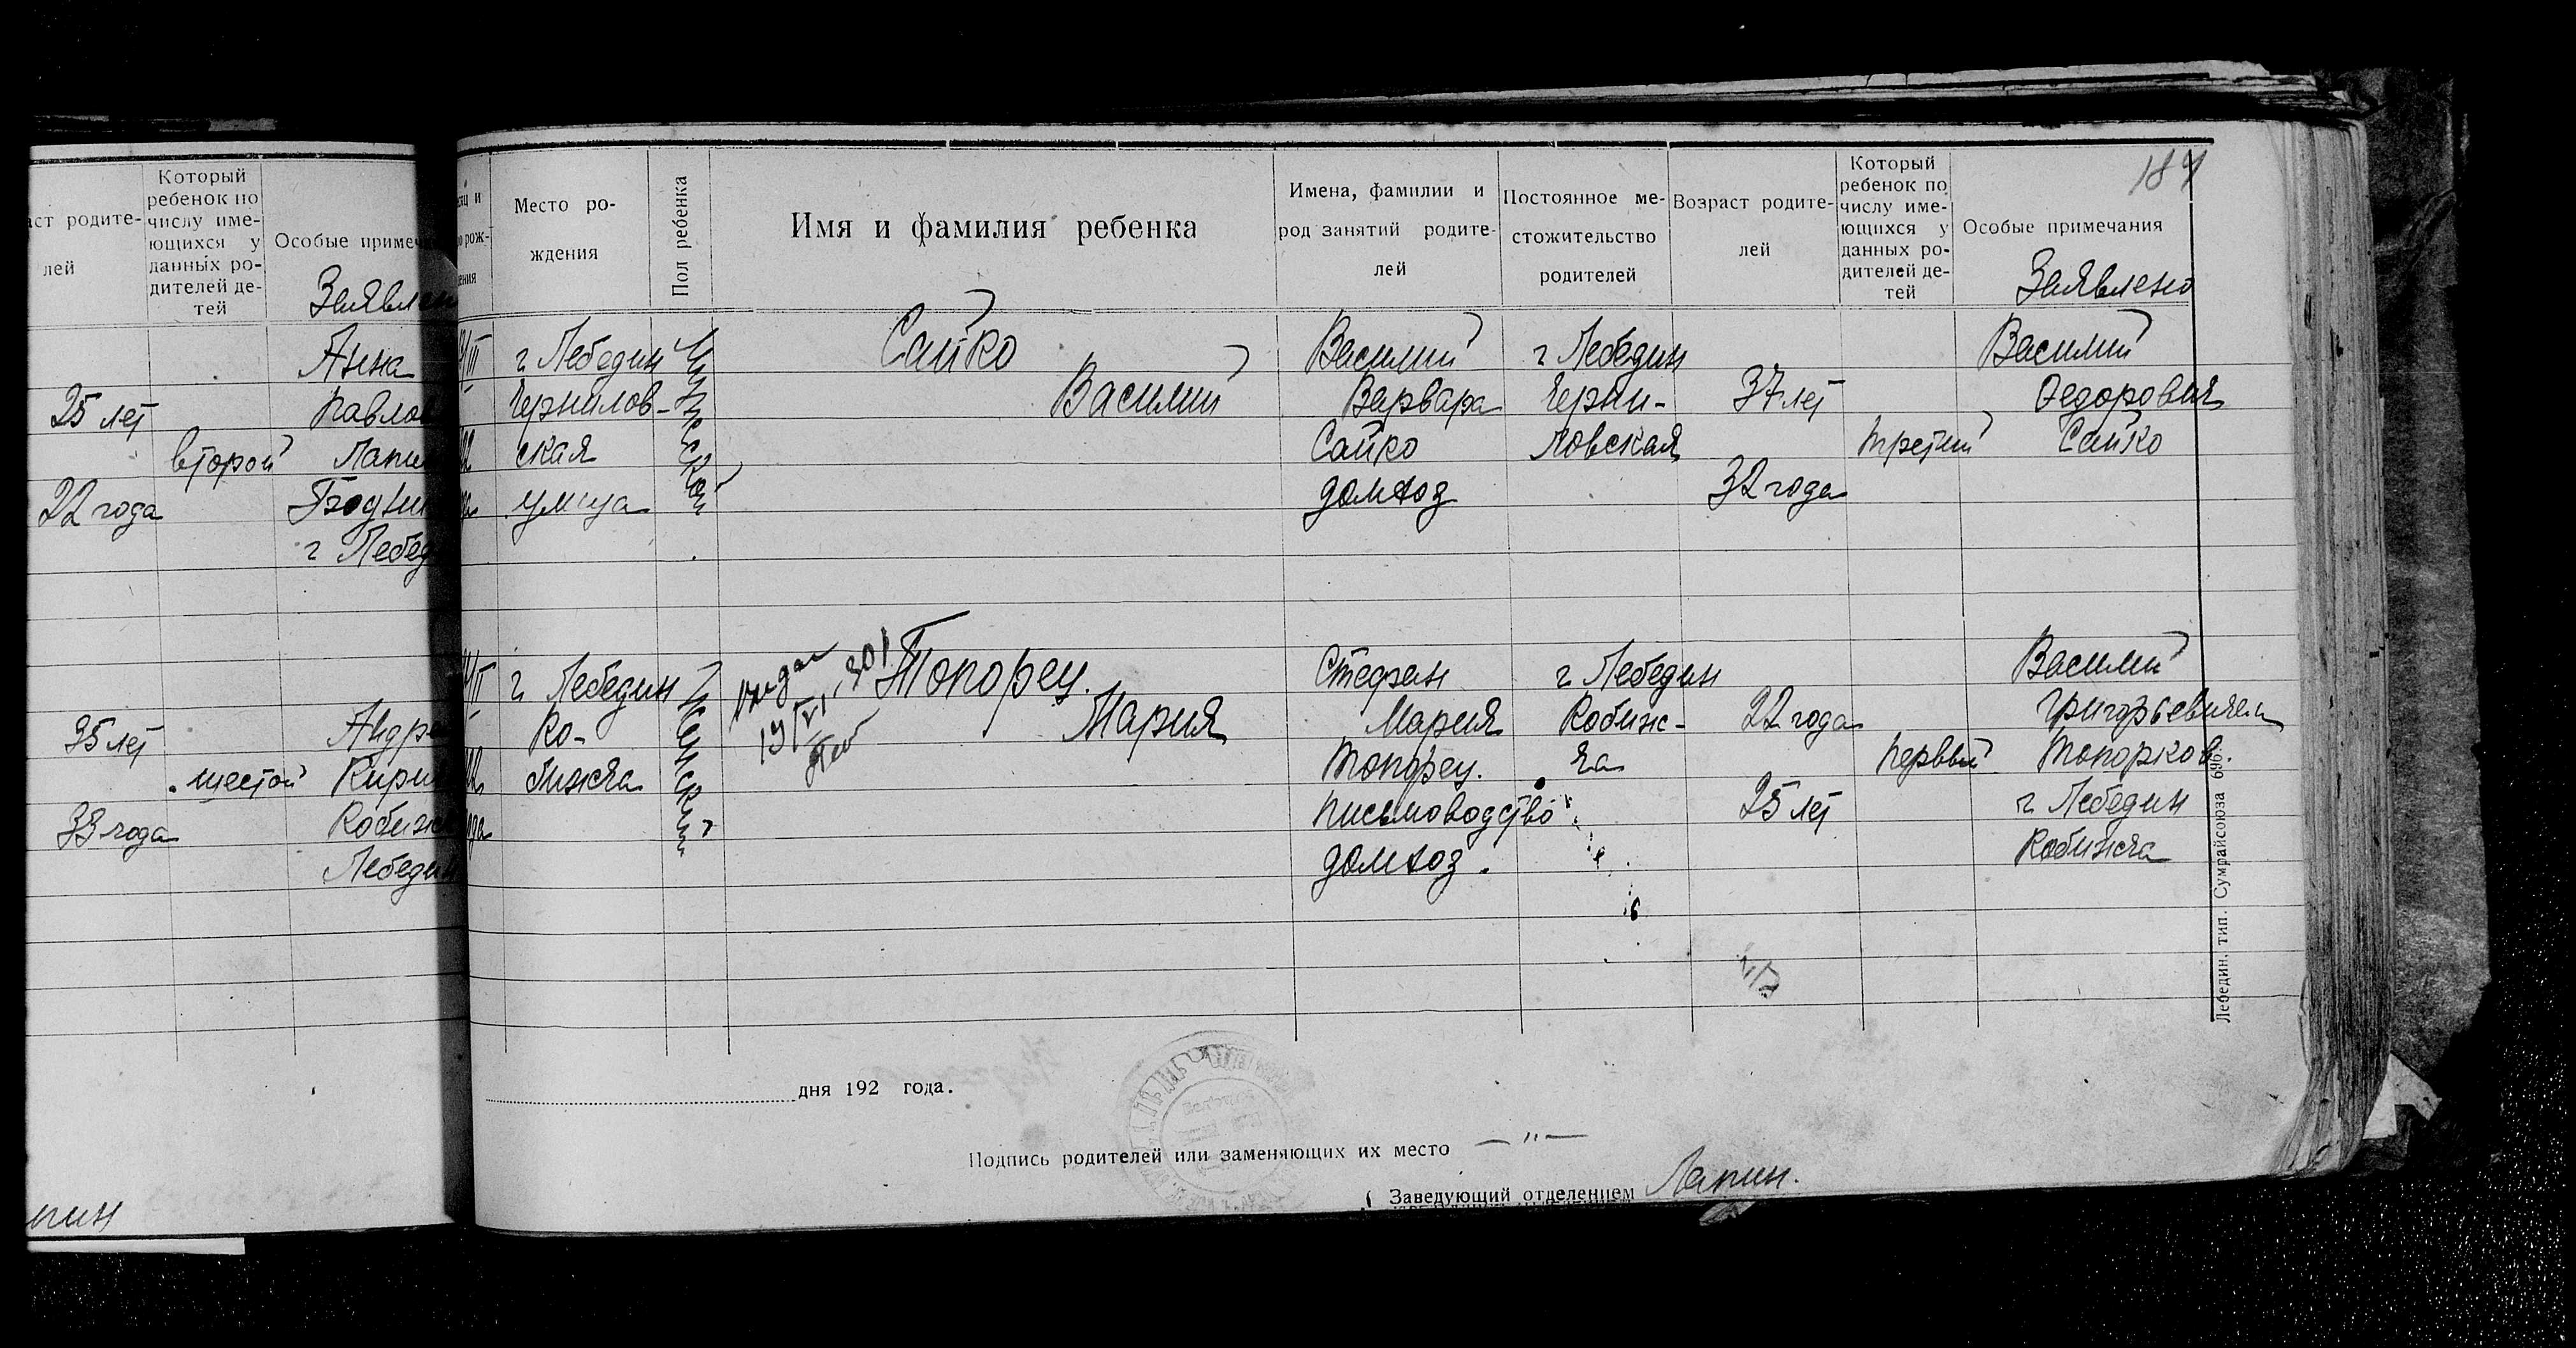 Который
ребенок по
числу име-
ющихся у
данных ро-
дителей де-
тей
родите-
лей
Особые
25 лет
второй
22 года
Анна
г
35 лет
шестой
33 года
Место ро-
ждения
Пол ребенка
Имя и фамилия ребенка
Имена, фамилии и
род занятий родите-
лей
Постоянное ме-
стожительство
родителей
Возраст родите-
лей
Который
ребенок по
числу име-
ющихся у
данных ро-
дителей де-
тей
Особые примечания
Заявлено
г Лебедин
Чернилов-
ская
улица
Мужеской
Сайко
Василий
Василий
Варвара
Сайко
домхоз
г Лебедин
Черни-
ловская
37 лет
32 года
третий
Василий
Федорович
Сайко
г. Лебедин
Ко-
бижча
Женский
Топорец.
Мария
19/VI
Стефан
Мария
Топорец.
письмоводство
домхоз.
г Лебедин
Кобиж-
ча
22 года
25 лет
первый
Василий
Григорьевичем
Топорков.
г Лебедин
Кобижча
Лебедин. тип. Сумрайсоюза 696.
дня 192 года.
Подпись родителей или заменяющих их место — " —
Заведующий отделением Лапин.